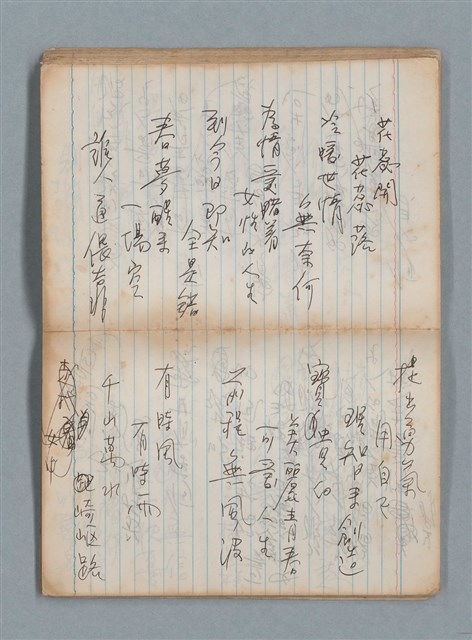 花蕊開
花蕊落
冷暖世情
無奈何
為情受踏着
女性的人生
到今日即知
全是錯
春夢醒來
一場空
誰人通偎靠
提出勇氣
用自己
理智來創造
寶貴的
美麗青春
可愛人生
前程無風波
有時風
有時雨
千山萬水
崎嶇路